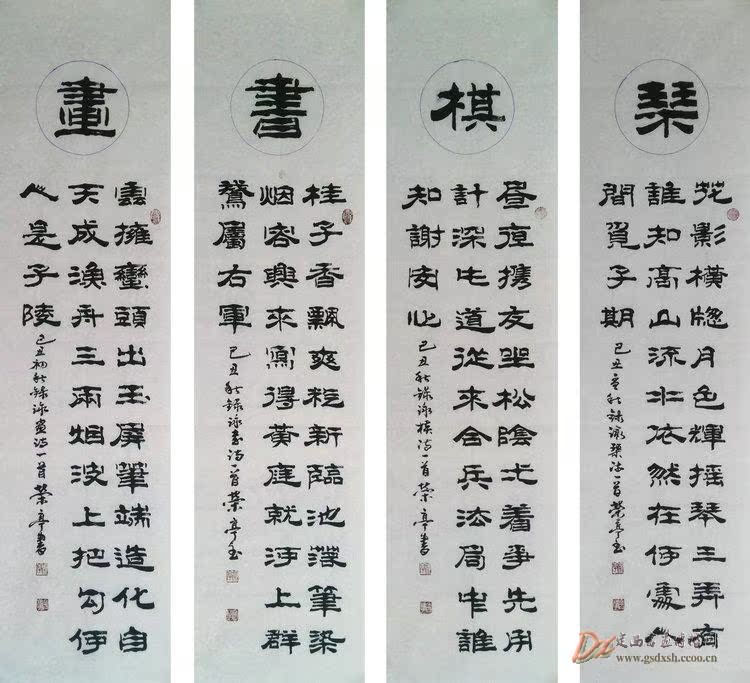 琴
花影橫牕月色輝搖琴三弄有
誰知高山流水依然在何處人
間覓子期
己丑初秋錄詠琴詩一首榮亭書
棋
昼夜携友坐松陰着爭先用
計深此道從來合兵法局中誰
知謝安心
己丑初秋錄詠棋詩一首榮亭書
書
桂子香飄爽新臨池落筆染
烟興來寫得黃庭就上群
鵞屬右軍
己丑初秋錄詠書詩一首榮亭書
畫
雲擁巒頭出玉屏筆端造化自
天成漁舟三兩烟波上把勾何
人是子陵
己丑初秋錄詠畫詩一首榮亭書
www.gsdxsh.ccoo.cn